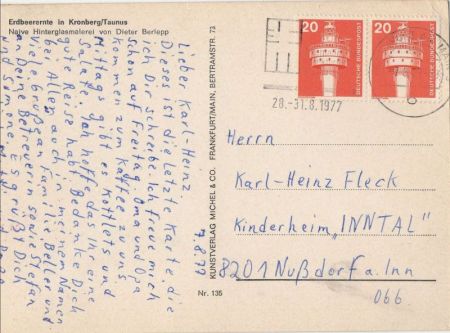 Erdbeerernte in Kronberg/Taunus
Naive Hinterglasmalerei von Dieter Berlepp
7.8.77
Lieber Karl-Heinz
Dieses ist die letzte Karte, die
ich Dir schreibe. Ich freue mich
schon auf Freitag. Oma und Opa
kommen zum Kaffee zu uns
Mittags gibt es Kottlets und
Salat. Ich hoffe das Ihr eine
gut Reise habt Bedanke Dich
bei Allen auch in meinem Namen
viele Grüße an Familie Beller und
an Deine Betreuerin sowie Stefan
und Simone es grüßt Dich
KUNSTVERLAG MICHEL & CO. FRANKFURT/MAIN, BERTRAMSTR. 73
Nr. 135
20 20
DEUTSCHE BUNDESPOST DEUTSCHE BUNDESPOST
28.-31.8.1977
Herrn
Karl-Heinz Fleck
Kinderheim „INNTAL"
8201 Nußdorf a. Inn
066